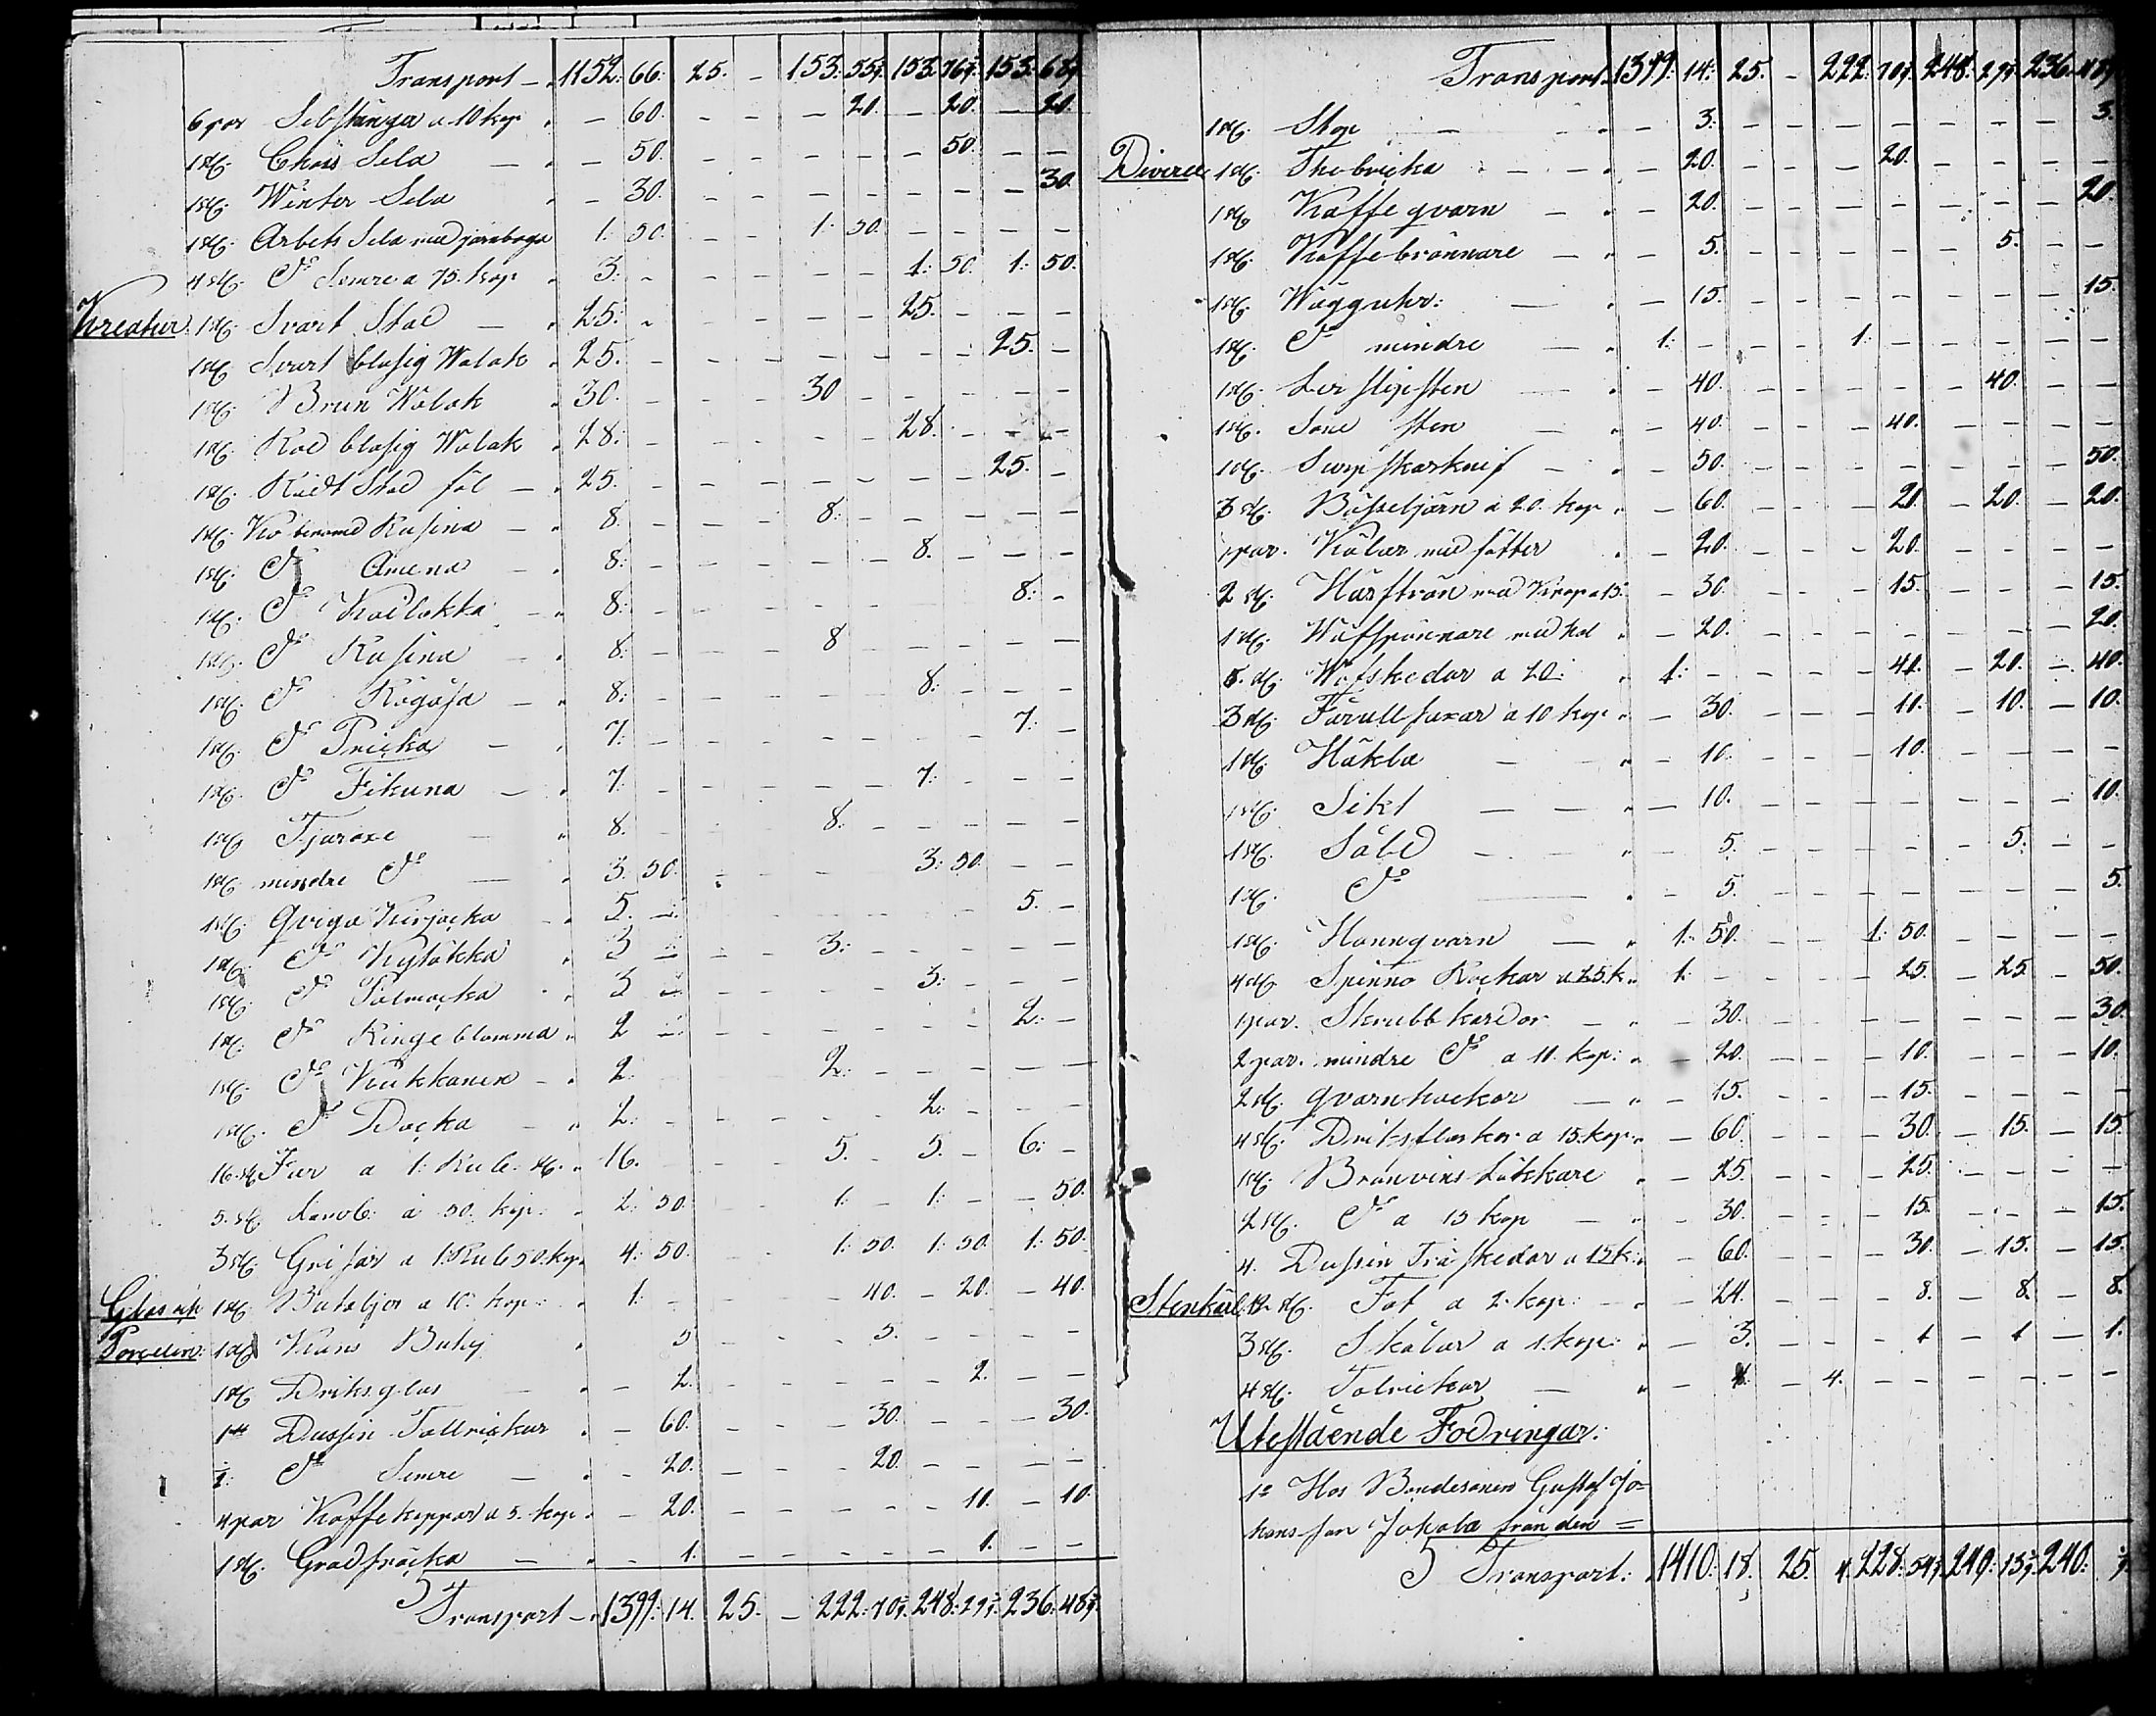 Transport - 1152: 66: 25. - 153: 55 153: 76 153: 68
6 par Selstänga a 10 kop - 60. - - - 20. - 20. - 20.
1 st. Chäis Sela - - 50. - - - - - 50. - -
1 st. Winter Sela - 30. - - - - - - - 30.
1 st. Arbets Sela med jernboga 1: 50. - - 1: 50. - - - -
4 st. Do Semre a 75. kop 3: - - - - - 1: 50. 1: 50.
Kreatur: 1 st. Svart Sto 25: - - - - - 25. - - -
1 st. Svart blasig Walak 25. - - - - - - - 25. -
1 st. Brun Walak 30. - - - 30 - - - - -
1 st. Röd blasig Walak 28: - - - - - 28. - - -
1 st. Rödt Sto föl - 25. - - - - - - - 25. -
1 st. Ko benemd Rusina - 8. - - - 8: - - - - -
1 st. Do Amena - 8: - - - - - 8. - - -
1 st. Do Koelokka - 8: - - - - - 8: -
1 st. Do Rusina - 8: - - - 8 - - - - -
1 st. Do Rogåsa - 8: - - - - - 8: - - -
1 st. Do Pricka - 7. - - - - - - - 7: -
1 st. Do Fikuna - 7. - - - - - 7: - - -
1 st. Tjuroxe - 8. - - 8: - - - - -
1 st. mindre Do - 3. 50. - - - 3: 50. - -
1 st. Qviga Kirjacka - 5. - - - - - 5. -
1 st. Do Kytökka 3 - - - 3: - - - - -
1 st. Do Palmacka 3 - - - - - 3: - - -
1 st. Do Ringeblomma 2 - - - - - - - 2: -
1 st. Do Kukkanen - 2. 2: - - - - -
1 st. Do Docka - 2: - - - - - 2: - - -
16. st. Får a 1: Rub. st. 16. - - 5. - 5. - 6: -
5. st. Lamb: a 50. kop: 2: 50. 1: - 1: - - 50.
3 st. Grisar a 1: Rub 50. kop 4: 50. - - 1: 50. 1: 50. 1: 50.
Glas ock 1 st. Buteljer a 10. kop: 1: - - - - 40. - 20. - 40.
Porcelin: 1 st. Krus Butelj 5 - - - 5. - - - -
1 st. Driksglas - - 2. - - - - - 2. - -
1 Dussin Tallrickar - 60. - - - 30. - - - 30.
1: Do Semre - - 20. - - - 20. - - - -
4 par Kaffe koppar a 5. kop - 20. - - - - - 10. - 10.
1 st. Gradsnäcka - - 1. - - - - - 1. - -
Transport - 1399: 14. 25. - 222: 70 248: 29 236: 48
Transport 1399: 14: 25. - 222: 70 248: 29 236: 48
1 st. Stop - - - 3: - - - - - - - 3.
Diverse 1 st. Thebricka - - - 20. - - - 20. - - - -
1 st. Kaffe qvarn - - 20. - - - - - - - 20.
1 st. Kaffebrännare - - 5. - - - - - 5. - -
1 st. Wägguhr: - - 15. - - - - - - - 15.
1 st. Do mindre - 1: - - - 1: - - - - -
1 st. Ler slipsten - - 40. - - - - - 40. - -
1 st. Sand sten - - 40. - - - 40. - - - -
1 st. Surpskarknif - - 50. - - - - - - - 50.
3 st. Bösseljärn a 20. kop - 60. - - - 20. - 20. - 20.
1 par. Kälar med fötter - 20. - - - 20. - - - -
2 st. Häfströn med Krop a 15: - 30. - - - 15. - - - 15.
1 st. Wäfspännare med hol - 20. - - - - - - - 20.
5. st. Wäfskedar a 20: 1: - - - - 40. - 20. - 40.
3 st. Fårull saxar a 10 kop - 30. - - - 10. - 10. - 10.
1 st. Häkla - - 10. - - - 10. - - - -
1 st. Sikt - - 10. - - - - - - - 10.
1 st. Såld - - 5. - - - - - 5. - -
1 st. Do - - 5. - - - - - - - 5.
1 st. Hannqvarn - 1: 50. - - 1: 50. - - - -
4 st. Spinno Rockar a 25. k. 1: - - - - 25. - 25. - 50.
1 par. Skrubb kardor - - 30. - - - - - - - 30.
2 par. mindre Do a 10. kop: - 20. - - - 10. - - - 10.
2 st. qvarnhackor - - 15. - - - 15. - - - -
4 st. Driksflaskor a 15. kop. - 60. - - - 30. - 15. - 15.
1 st. Bränvins Läkkare - 25. - - - 25. - - - -
2 st. Do a 15 kop - - 30. - - - 15. - - - 15.
4. Dussin Träskedar a 15 k. - 60. - - - 30. - 15. - 15.
Stenkäril: 12 st. Fat a 2. kop: - - 24. - - - 8. - 8. - 8.
3 st. Skålar a 1. kop: - 3. - - - 1 - 1 - 1.
4 st. Talrickar - - 4. - 4. - - - - - -
Utestående Fodringar:
1o Hos Bondesonen Gustaf Jo=
hansson Jakola från den =
Transport: 1410: 18. 25. 4. 228: 54 249: 15 240: